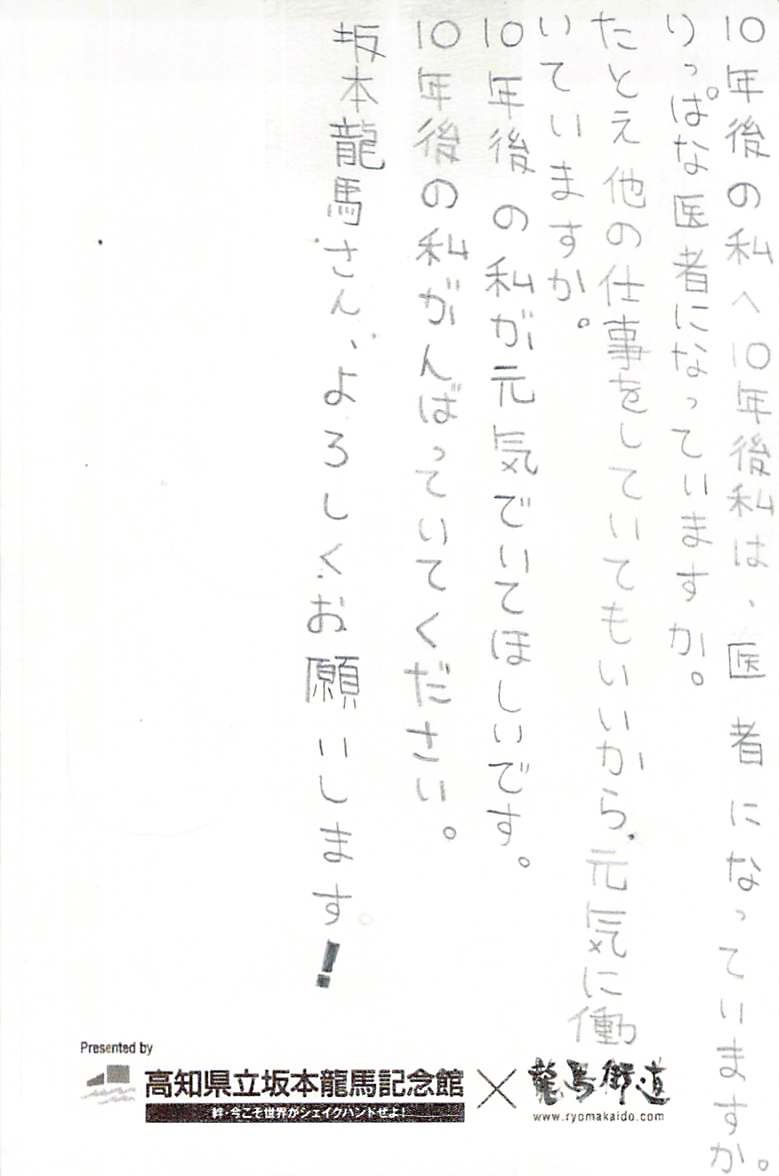 10年後の私へ10年後私は、医者になっていますか。
りっぱな医者になっていますか。
たとえ他の仕事をしていてもいいから元気に働
いていますか。
10年後の私が元気でいてほしいです。
10年後の私がんばっていてください。
坂本龍馬さん、よろしくお願いします!
Presented by
高知県立坂本龍馬記念館×龍馬街道
絆・今こそ世界がシェイクハンドせよ!
www.ryomakaido.com